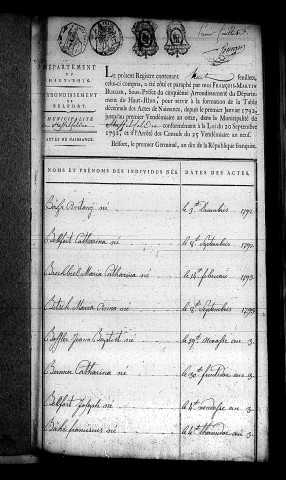 DÉPARTEMENT
DU
HAUT-RHIN.
ARRONDISSEMENT
DE
BELFORT.
MUNICIPALITÉ
ACTES DE NAISSANCE.
Le présent Registre contenant huit feuillets,
celui-ci compris, a été coté et paraphé par moi FRANÇOIS-MARTIN
Sous-Préfet du cinquième Arrondissement du Départem
du Haut-Rhin, pour servir à la formation de la Table
décennale des Actes de Naissance, depuis le premier Janvier 1793,
jusqu'au premier Vendémiaire an onze, dans la Municipalité de
conformément à la Loi du 20 Septembre
1792, et l'Arrêté des Consuls du 25 Vendémiaire an neuf.
Belfort, le premier Germinal, an dix de la République française.
NOMS ET PRÉNOMS DES INDIVIDUS NÉS. DATES DES ACTES.
Antoni né le 3e Decembris 1792.
Belfort Catharina né le 8e Septembris 1792.
Maria Catharina né le 14e februarii 1793.
Bitsch Maria Anna né le 12e Septembris 1793.
Jeann Baptist né le 29e vendose an 3.
Catharina né le 30e fructidor an 3.
Belfort Joseph né le 4e vendose an 3.
franciscus né le 4e thermidor an 3.